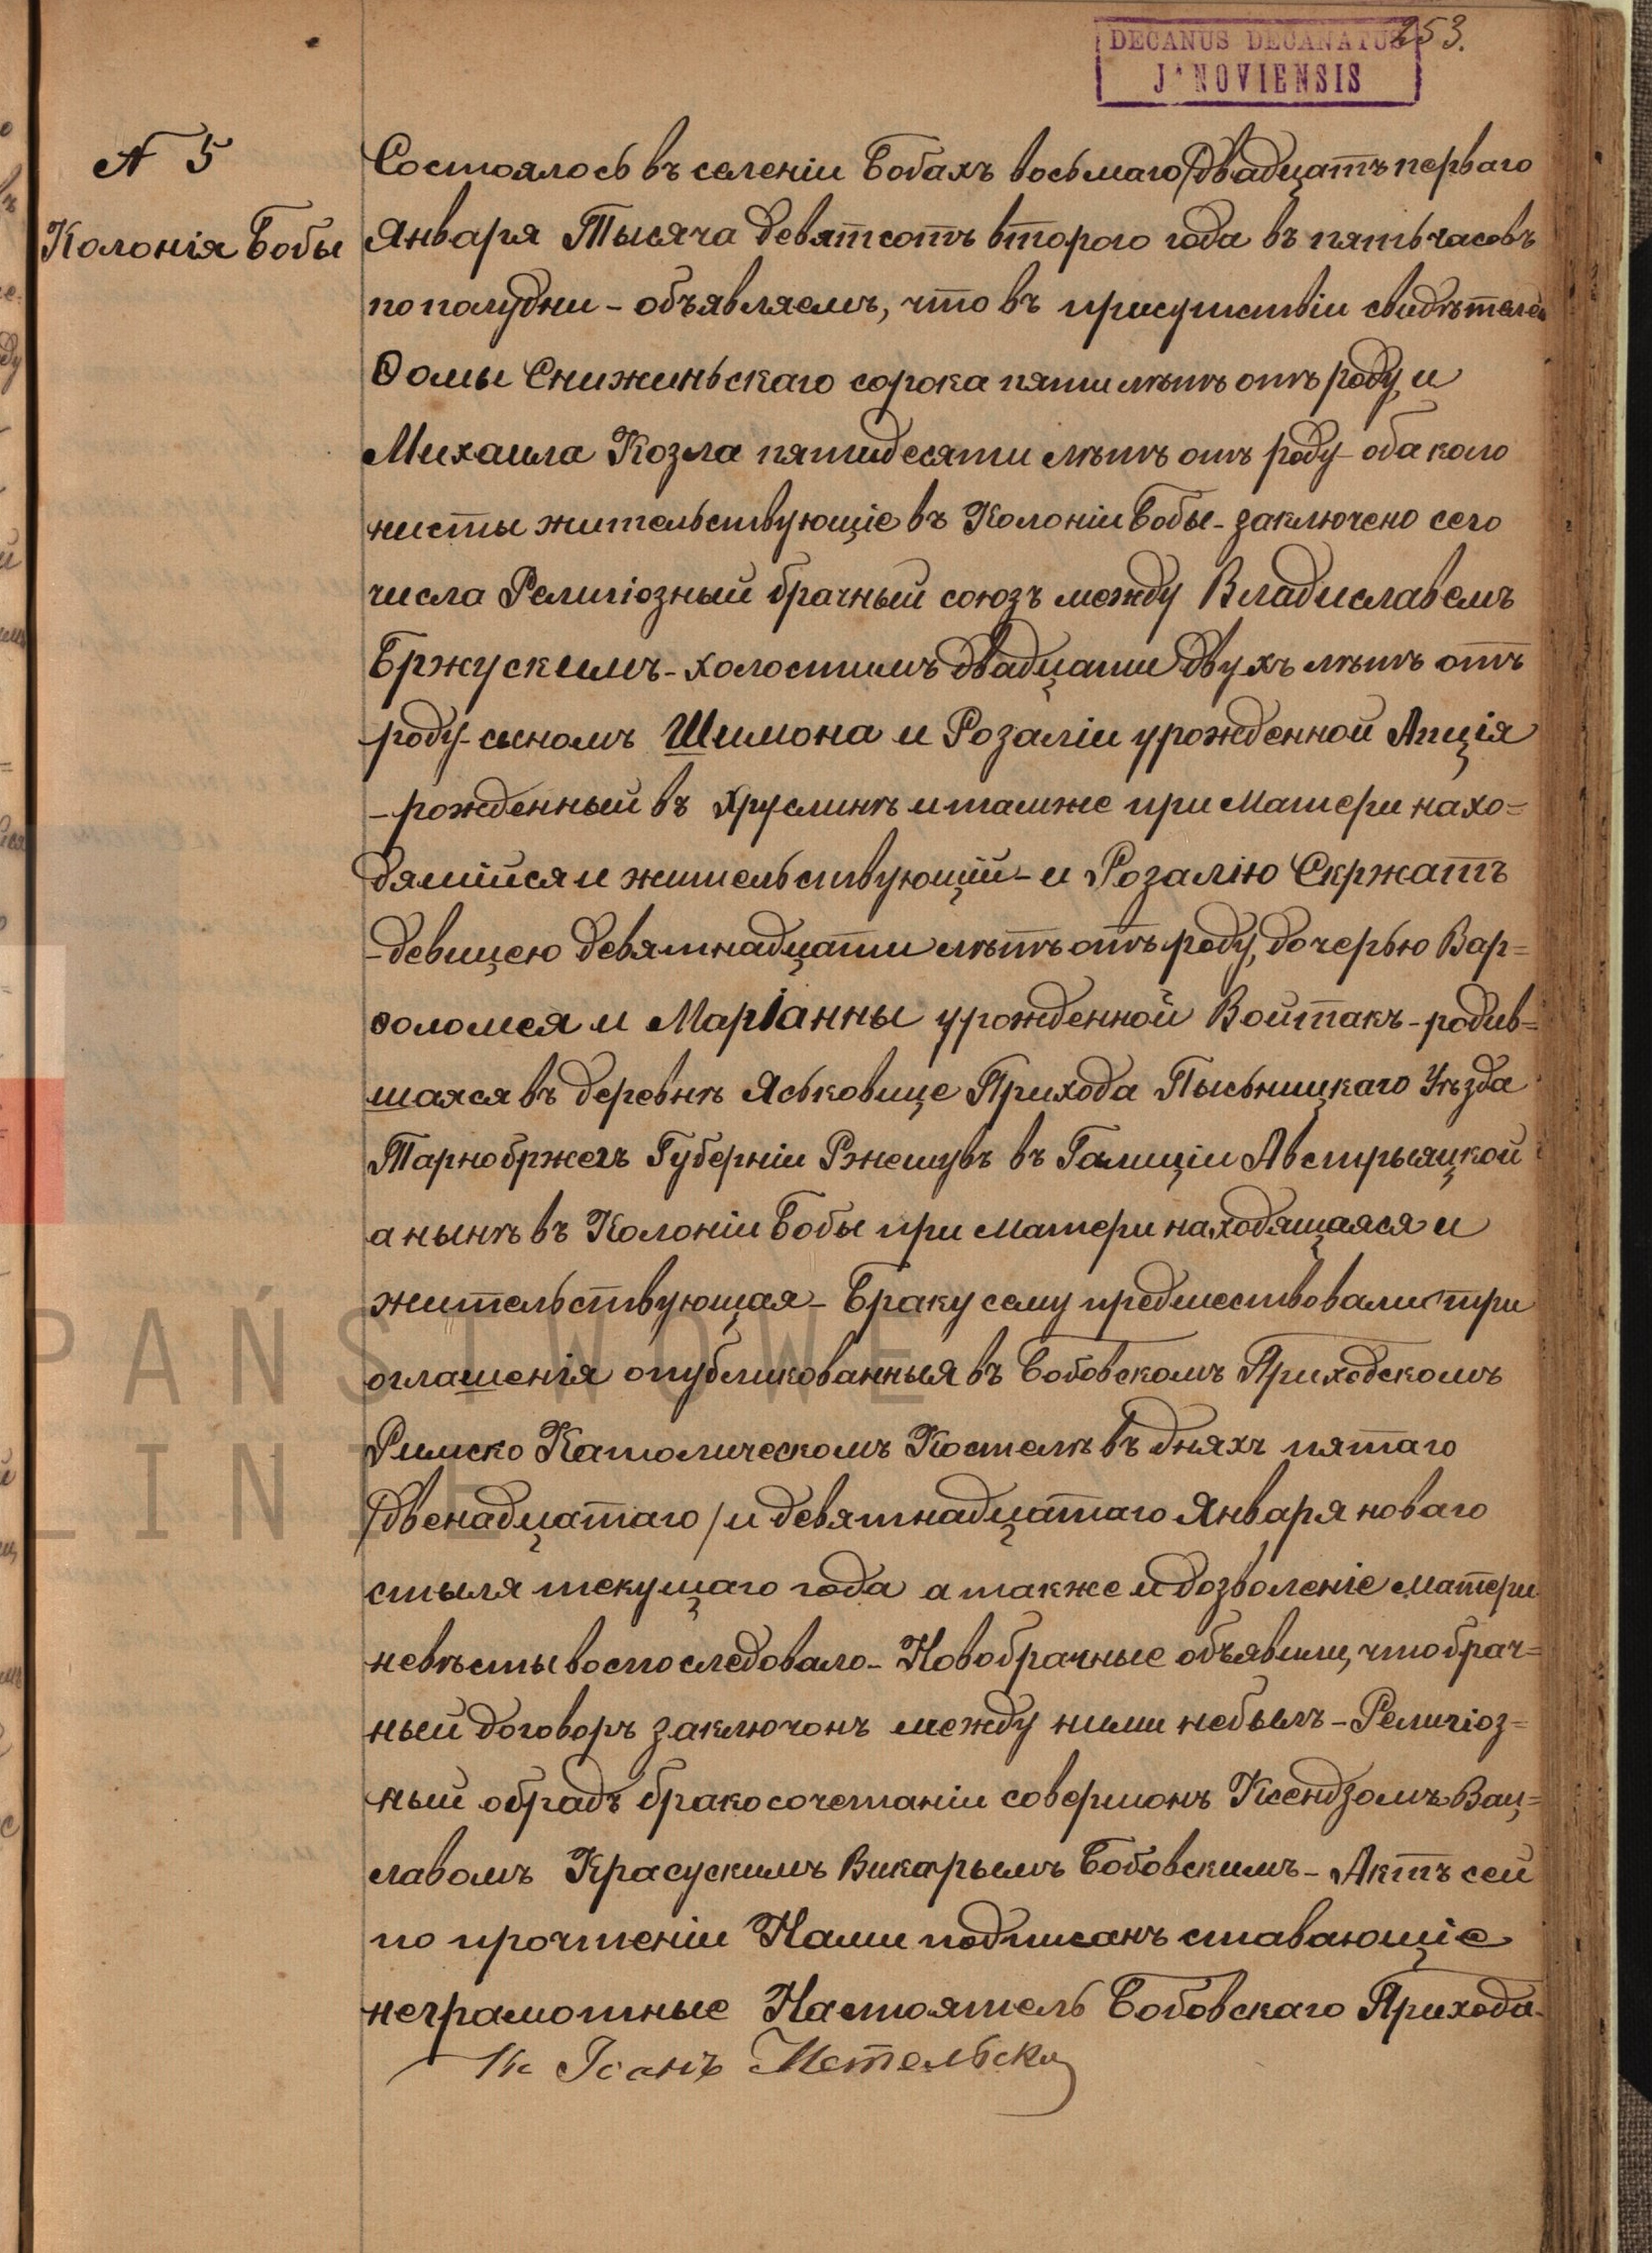 253.
DECANUS DECANATUS
J NOVIENSIS
N 5
Колонія Бобы
Состоялось въ селеніи Бобахъ восьмаго /двадцать перваго
Января Тысяча девятсотъ второго года въ пять часовъ
по полудни - объявляемъ, что въ присутствіи свидѣтелей
Ѳомы Снижиньскаго сорока пяти лѣтъ отъ роду и
Михаила Козла пятидесяти лѣтъ отъ роду - оба коло
нисты жительствующіе въ Колоніи Бобы - заключено сего
числа Религіозный брачный союзъ между Владиславемъ
Бржускимъ - холостимъ двадцати двухъ лѣтъ отъ
роду - сыномъ Шимона и Розаліи урожденной Апція
- рожденный въ Хруслинѣ и тамже при Матери нахо=
дямійся и жительствующій - и Розалію Скржатъ
- девицею девятнадцати лѣтъ отъ роду, дочерью Вар=
ѳоломея и Маріанны урожденной Войтакъ - родив=
шаяся въ деревнѣ Яськовице Прихода Пысьницкаго Уѣзда
Тарнобржегъ Губерніи Ржешувъ въ Галиціи Австрыяцкой
а нынѣ въ Колоніи Бобы при матери находящаяся и
жительствующая - Браку сему предшествовали три
оглашенія опубликованныя въ Бобовскомъ Приходскомъ
Римско Католическомъ Костелѣ въ дняхъ пятаго
/двенадцатаго / и девятнадцатаго Января новаго
стыля текущаго года а также и дозволеніе матери
невѣсты воспоследовало - Новобрачные объявили, что брач=
ный договоръ заключонъ между ними небылъ - Религіоз=
ный обрадъ бракосочетаніи совершонъ Ксендзомъ Вац=
лавомъ Красускимъ Викарымъ Бобовскимъ - Актъ сей
по прочтеніи Нами подписанъ ставающіе
неграмотные Настоятель Бобовскаго Прихода.
Кс Іоанъ Метельски
PAŃSTWOWE